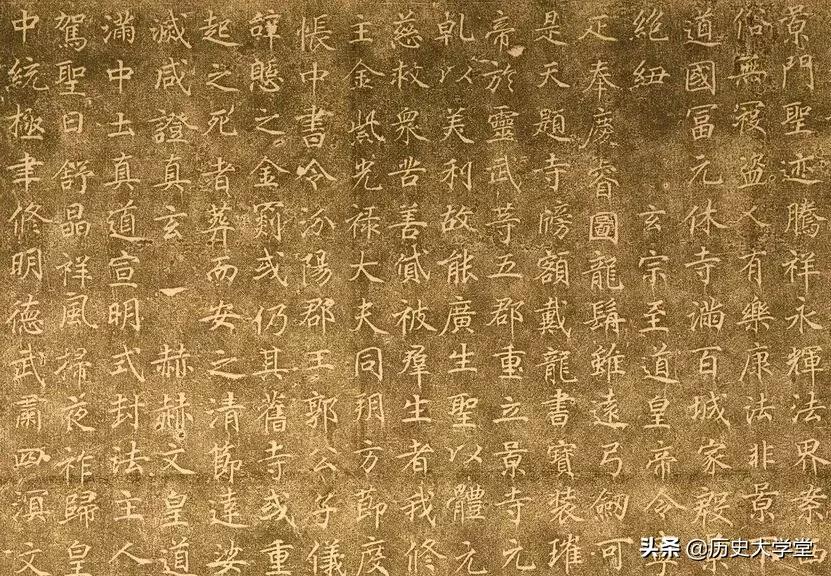 景門聖迹騰祥永輝法界案
俗無寇盜人有樂康法非景
道國冨元休寺滿百城家殷
絕紐 玄宗至道皇帝令
足奉慶睿圖龍髯雖遠弓劒可
是天題寺牓額戴龍書寶裝璀
帝於靈武等五郡重立景寺元
乹以美利故能廣生聖以體元
慈救衆苦善貸被羣生者我修
主金紫光禄大夫同朔方節度
悵中書令汾陽郡王郭公子儀
辭憩之金罽或仍其舊寺或重
起之死者葬而安之清節達娑
滅咸證真玄 赫赫文皇道
滿中土真道宣明式封法主人
駕聖日舒晶祥風掃夜祚歸皇
中統極聿修明德武肅四溟文
头条 @历史大学堂